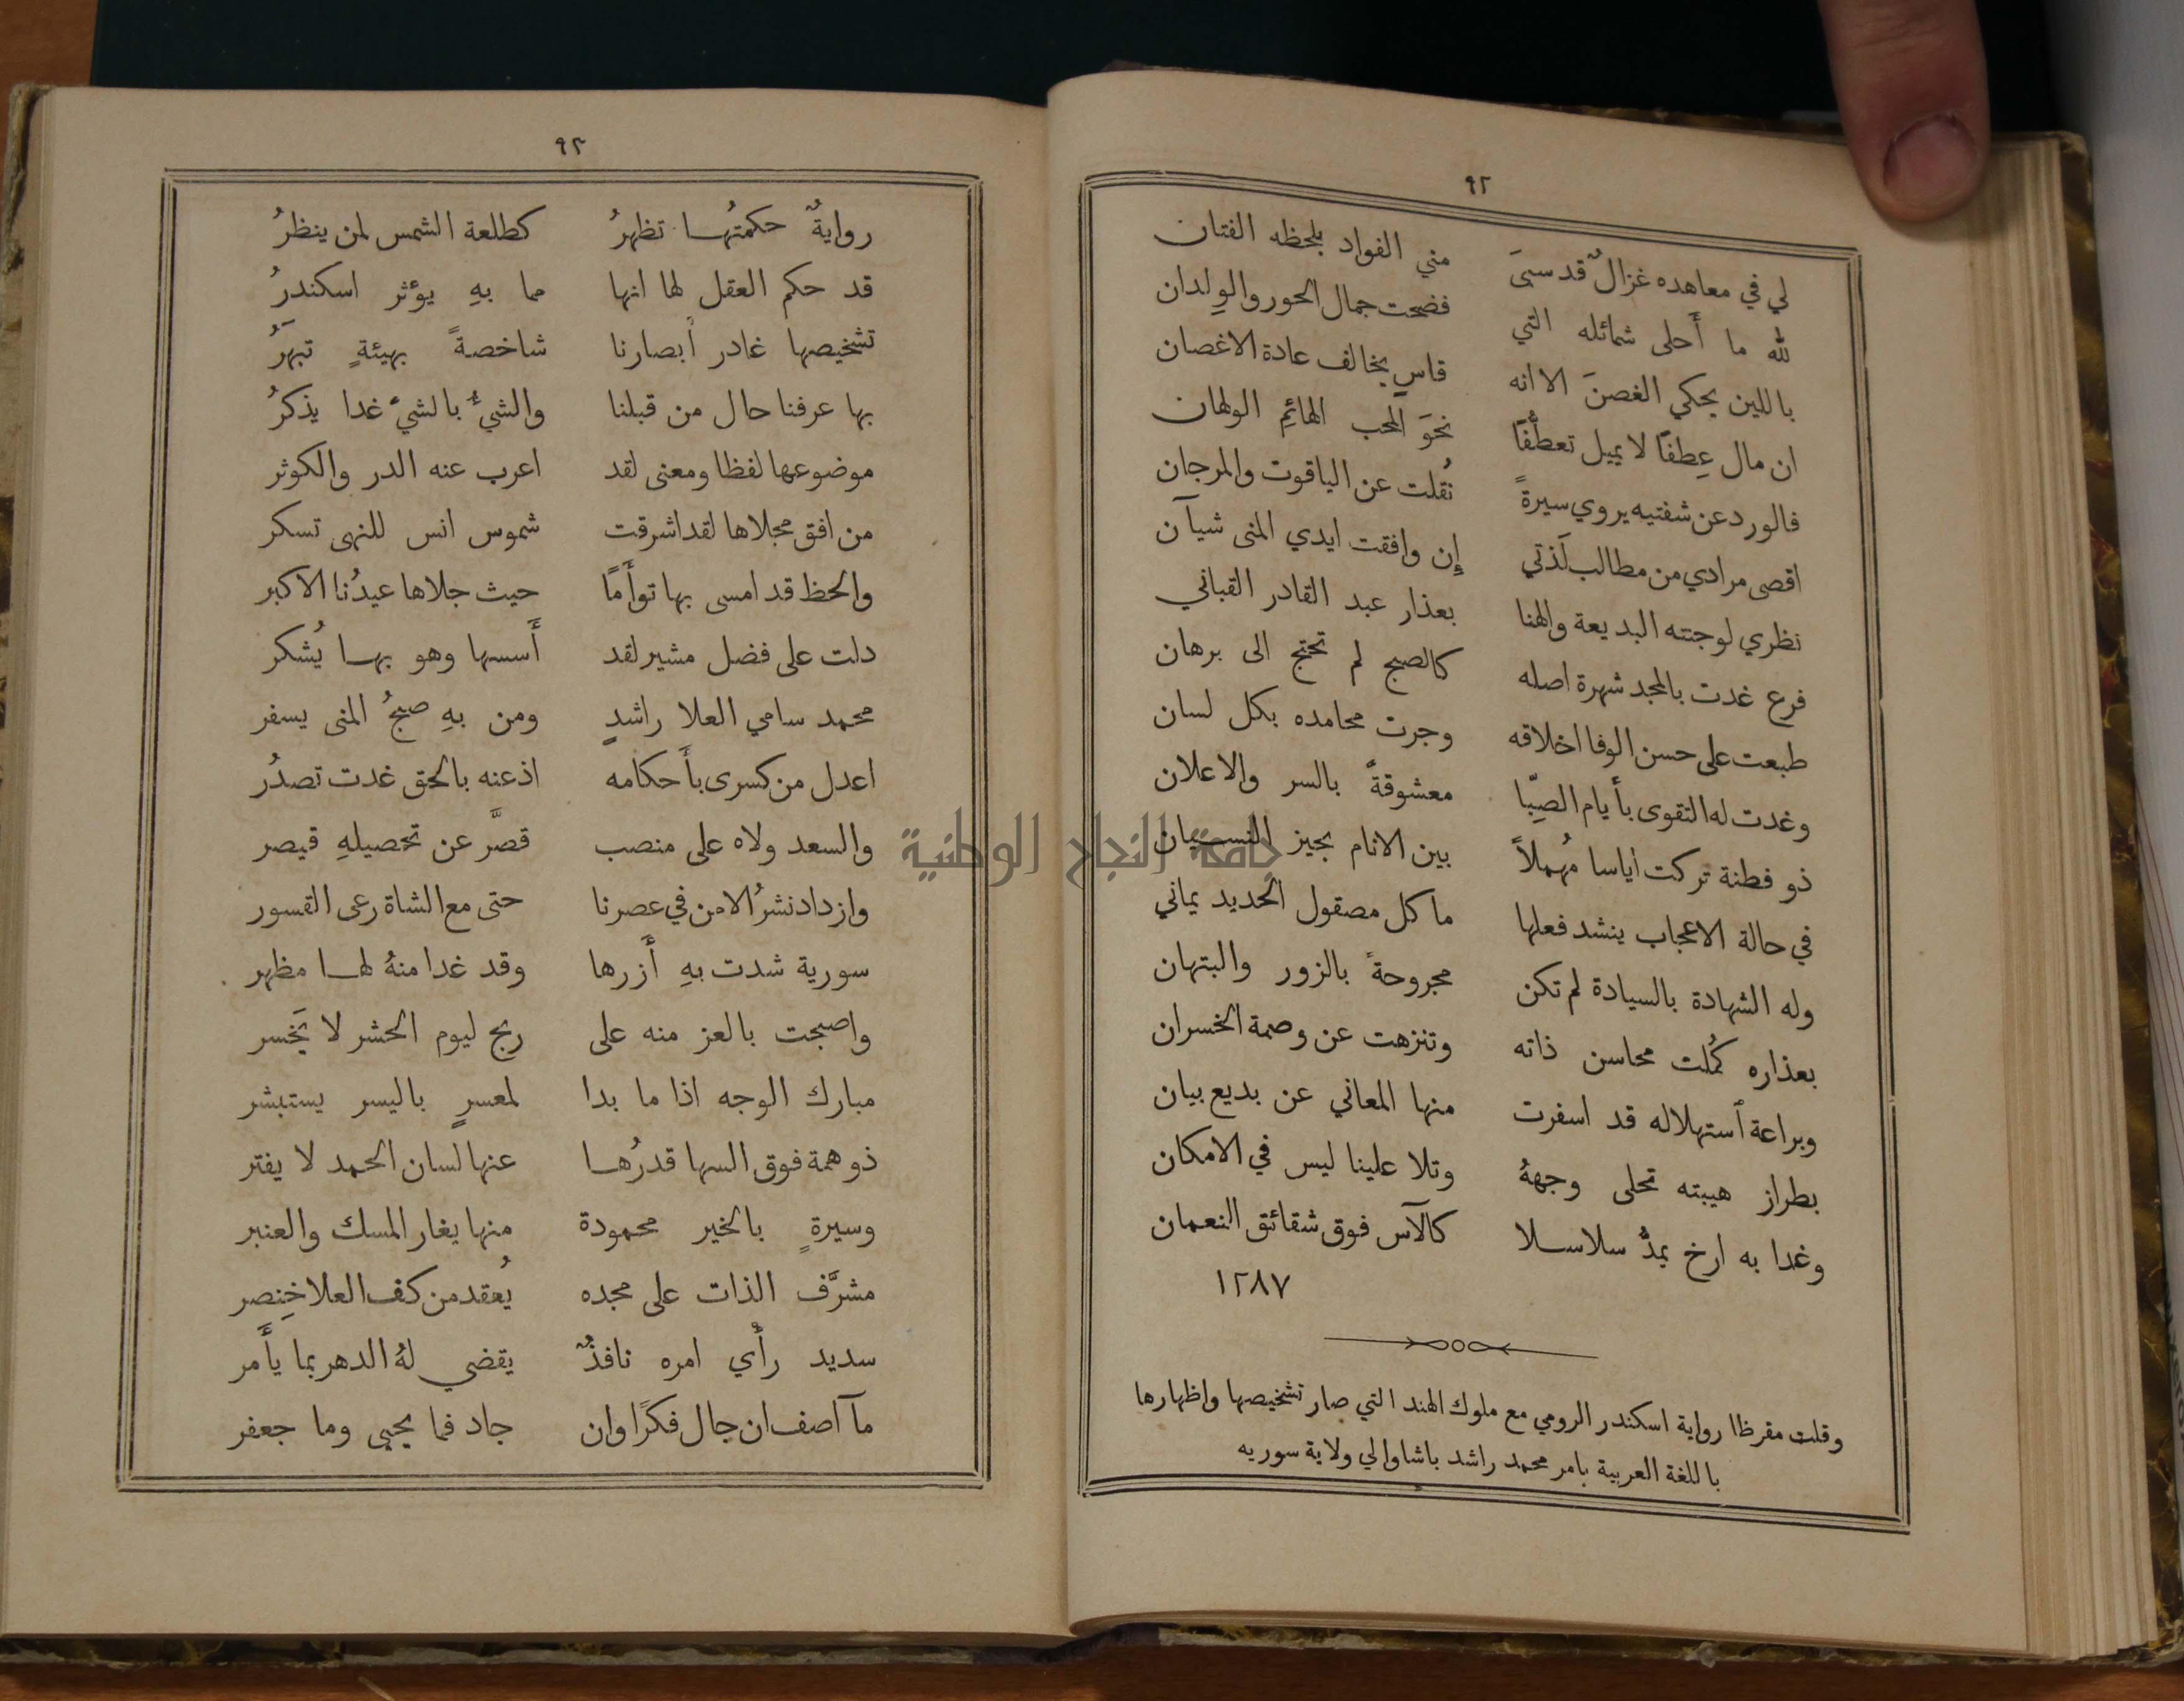 ٩٢
لي في معاهده غزالٌ قد سبىَ مني الفواد بلحظه الفتان
لله ما أَحلى شمائله التي فضحت جمال الحور والوِلدان
باللين يحكي الغصنَ الا انه قاسٍ يخالف عادة الاغصان
ان مال عِطفًا لا يميل تعطُّفًا نحوَ المحب الهائمِ الولهان
فالورد عن شفتيه يروي سيرةً نُقلت عن الياقوت والمرجان
اقصى مرادي من مطالب لَذتي إِن وافقت ايدي المنى شيآن
نظري لوجنته البديعة والهنا بعذار عبد القادر القباني
فرع غدت بالمجد شهرة اصله كالصبح لم تحتج الى برهان
طبعت على حسن الوفا اخلاقه وجرت محامده بكل لسان
وغدت له التقوى بأَيام الصِبّا معشوقةً بالسر والاعلان
ذو فطنة تركت اياسا مُهملاً بين الانام بحيز النسيان
في حالة الاعجاب ينشد فعلها ما كل مصقول الحديد يماني
وله الشهادة بالسيادة لم تكن مجروحةً بالزور والبتهان
بعذاره كُملت محاسن ذاته وتنزهت عن وصمة الخسران
وبراعة أستهلاله قد اسفرت منها المعاني عن بديع بيان
بطراز هيبته تحلى وجههُ وتلا علينا ليس في الامكان
وغدا به ارخ يمدُّ سلاسلا كالآس فوق شقائق النعمان
١٢٨٧
وقلت مقرظا رواية اسكندر الرومي مع ملوك الهند التي صار تشخيصها واظهارها
باللغة العربية بامر محمد راشد باشا والي ولاية سوريه
٩٣
روايةٌ حكمتُها تظهرُ كطلعة الشمس لمن ينظرُ
قد حكم العقل لها انها مما بهِ يؤثر اسكندرُ
تشخيصها غادر أَبصارنا شاخصةً بهيئةٍ تبهَرُ
بها عرفنا حال من قبلنا والشيُ بالشيَ غدا يذكرُ
موضوعها لفظا ومعنى لقد اعرب عنه الدر والكوثر
من افق مجلاها لقد اشرقت شموس انس للنهى تسكر
والحظ قد امسى بها توأَمًا حيث جلاها عيدُنا الاكبر
دلت على فضل مشير لقد أَسسها وهو بها يُشكر
محمد سامي العلا راشدٍ ومن بهِ صبحُ المنى يسفر
اعدل من كسرى بأَحكامه اذ عنه بالحق غدت تصدُر
والسعد ولاه على منصب قصَّر عن تحصيلهِ قيصر
وازداد نشرُ الامن في عصرنا حتى مع الشاة رعى القسور
سورية شدت بهِ أَزرها وقد غدا منهُ لها مظهر
واصبحت بالعز منه على ربح ليوم الحشر لا يَخسر
مبارك الوجه اذا ما بدا لمعسرٍ باليسر يستبشر
ذو همة فوق السها قدرُها عنها لسان الحمد لا يفتر
وسيرةٍ بالخير محمودة منها يغار المسك والعنبر
مشرَّف الذات على مجده يُعقد من كف العلا خِنصر
سديد رأْي امره نافذٌ يقضي لهُ الدهر بما يأَمر
ما آصف ان جال فكرًا وان جاد فما يحيى وما جعفر
جامعة النجاح الوطنية